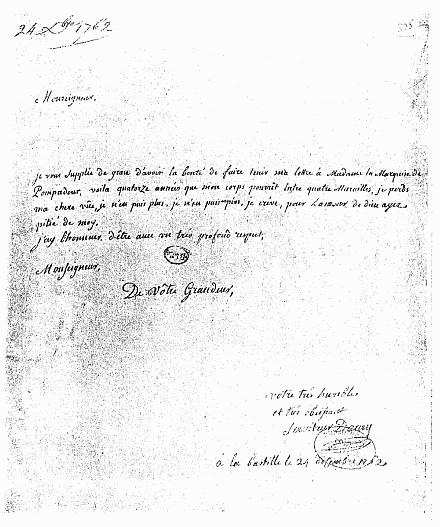 24 Xbre 1762
Monseigneur,
je vous supplie de grace d'avoir la bonté de faire tenir ma lettre à Madame la Marquise de
Pompadour, voila quatorze années que mon corps pourrit entre quatre Murailles, je perds
ma chere vüe, je n'en puis plus, je n'en puis plus, je crève, pour L'amour de dieu ayez
pitié de moy.
j'ay l'honneur d'être avec un très profond respect,
Monseigneur,
De vôtre Grandeur,
votre très humble
et très obéissant
serviteur Daury
à la bastille le 24 decembre 1762